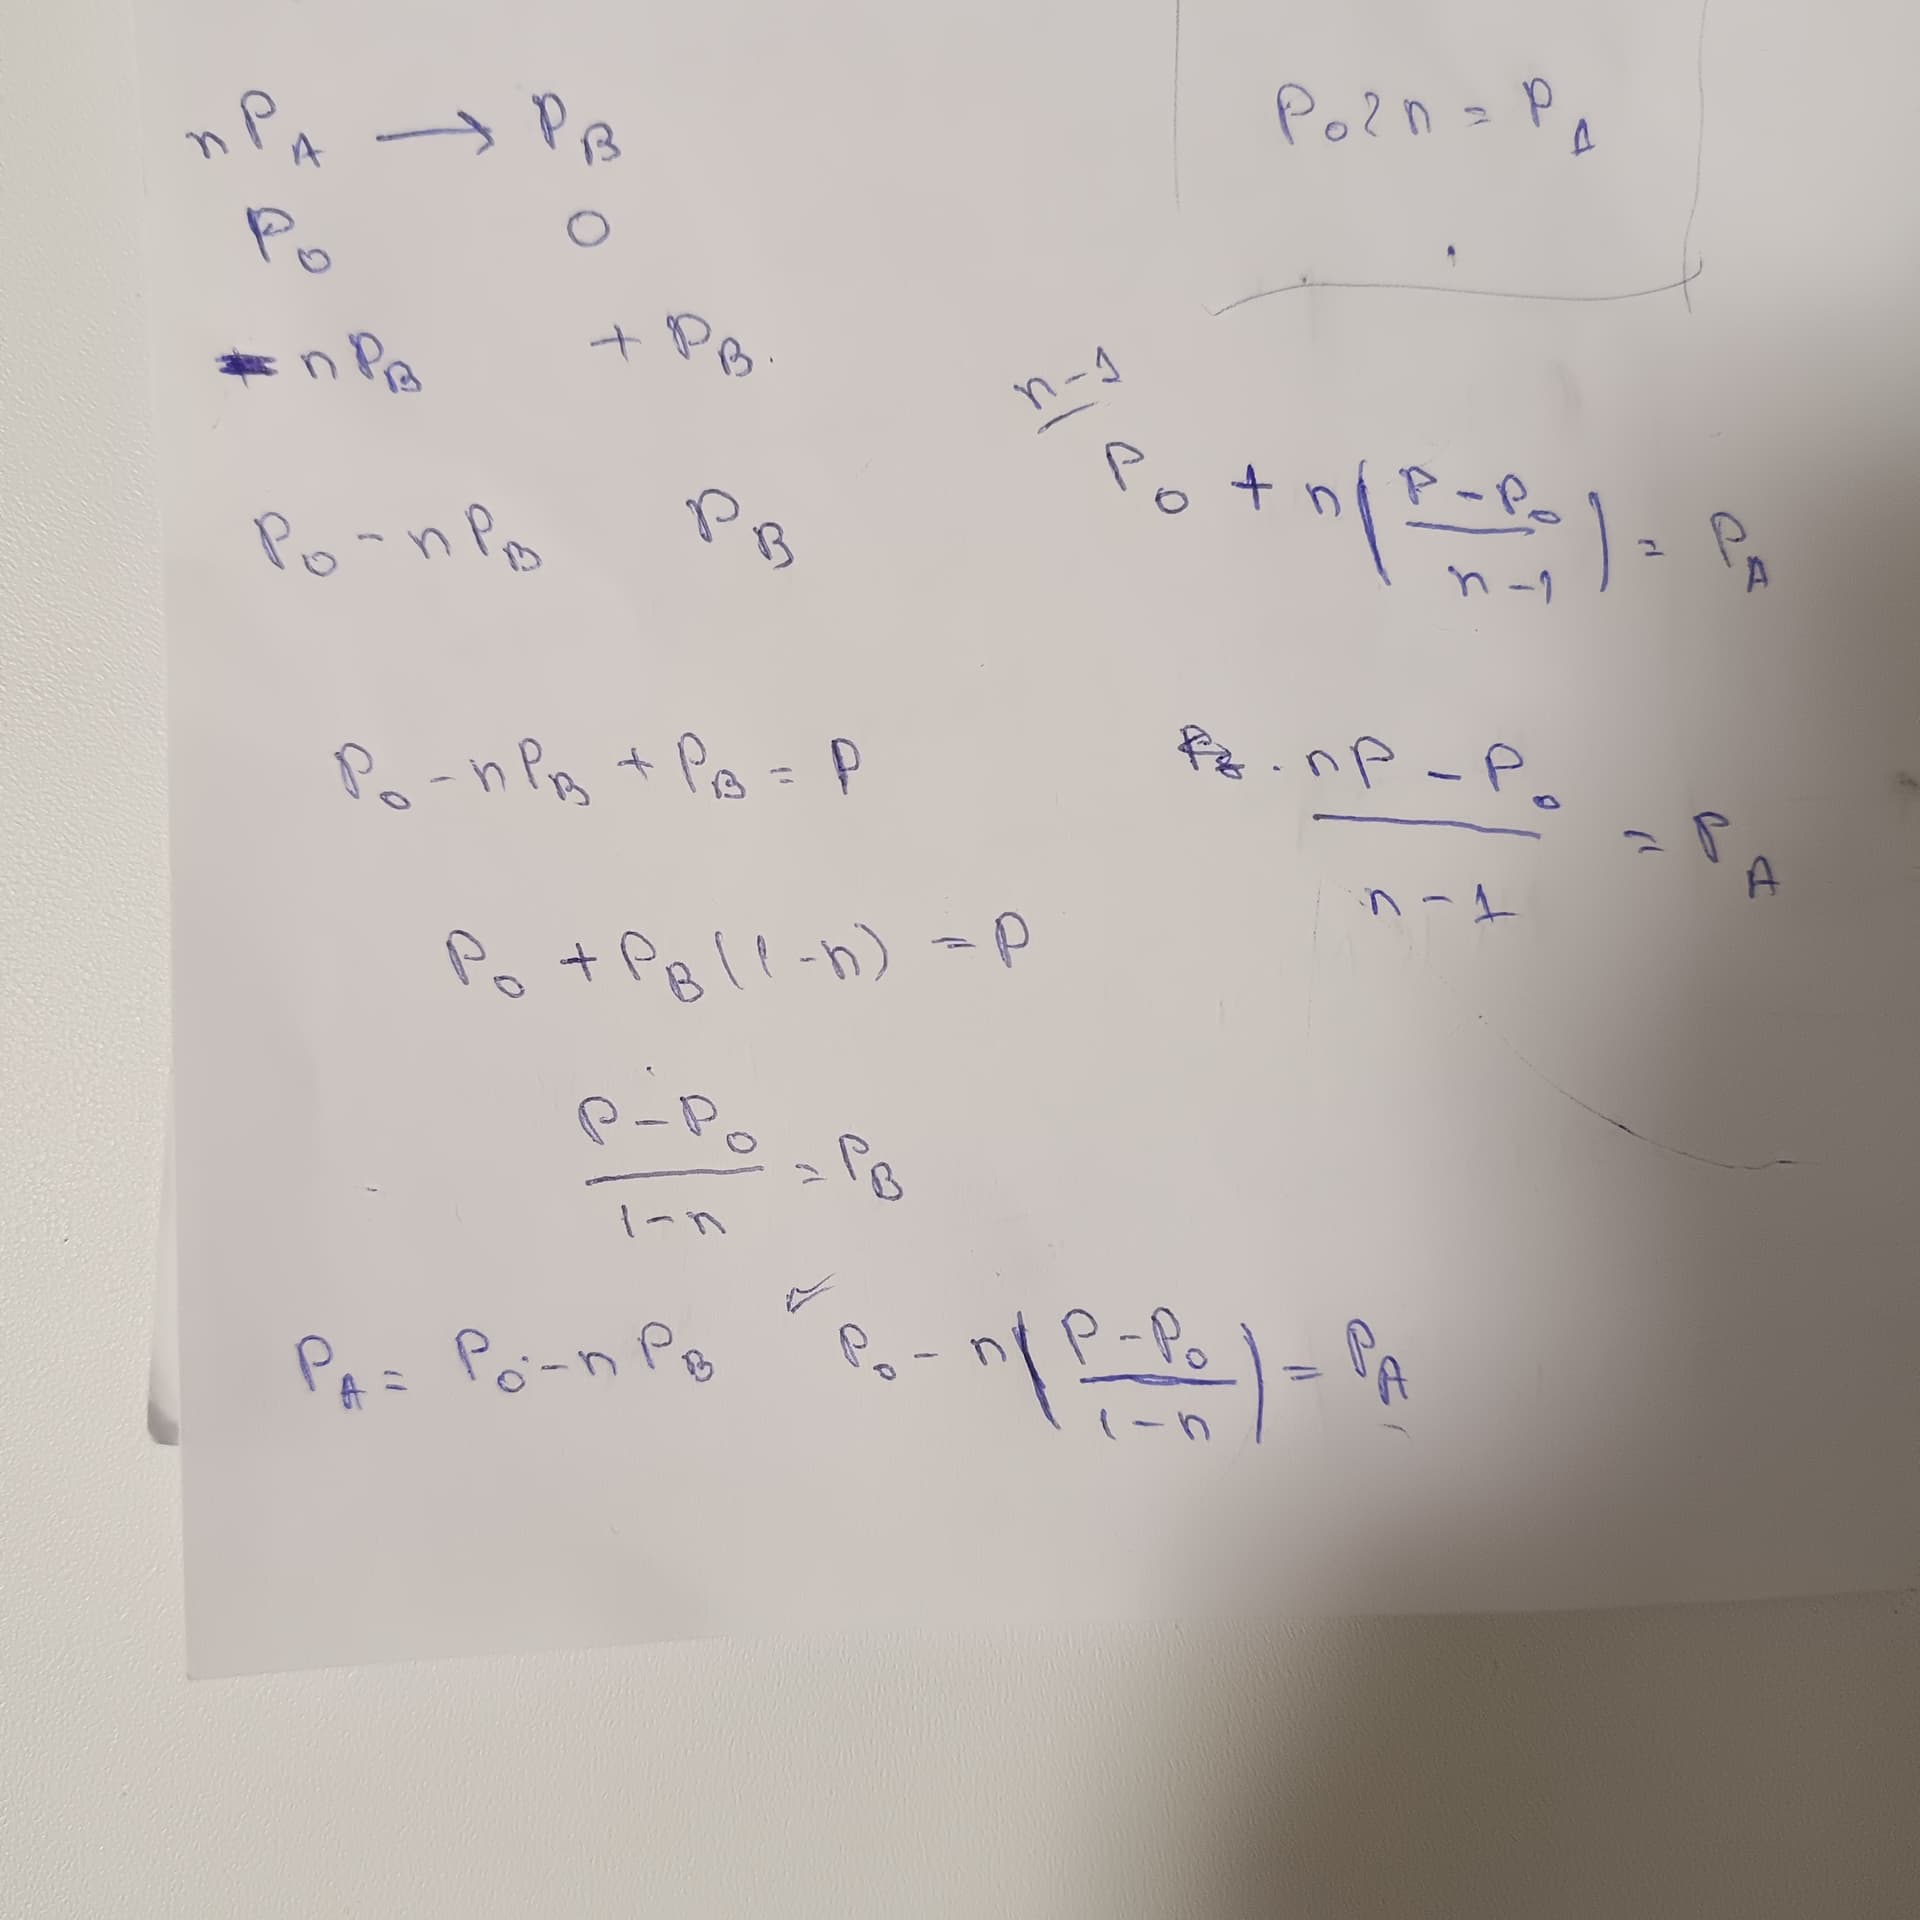 nP_A → P_B
P_0 0
- nP_B + P_B.
P_0 - nP_B P_B
P_0 - nP_B + P_B = P
P_0 + P_B (1-n) = P
(P - P_0)/(1-n) = P_B
P_A = P_0 - nP_B P_0 - n((P - P_0)/(1-n)) = P_A
P_0 ? n = P_A
n-1
P_0 + n((P - P_0)/(n-1)) = P_A
(nP - P_0)/(n-1) = P_A